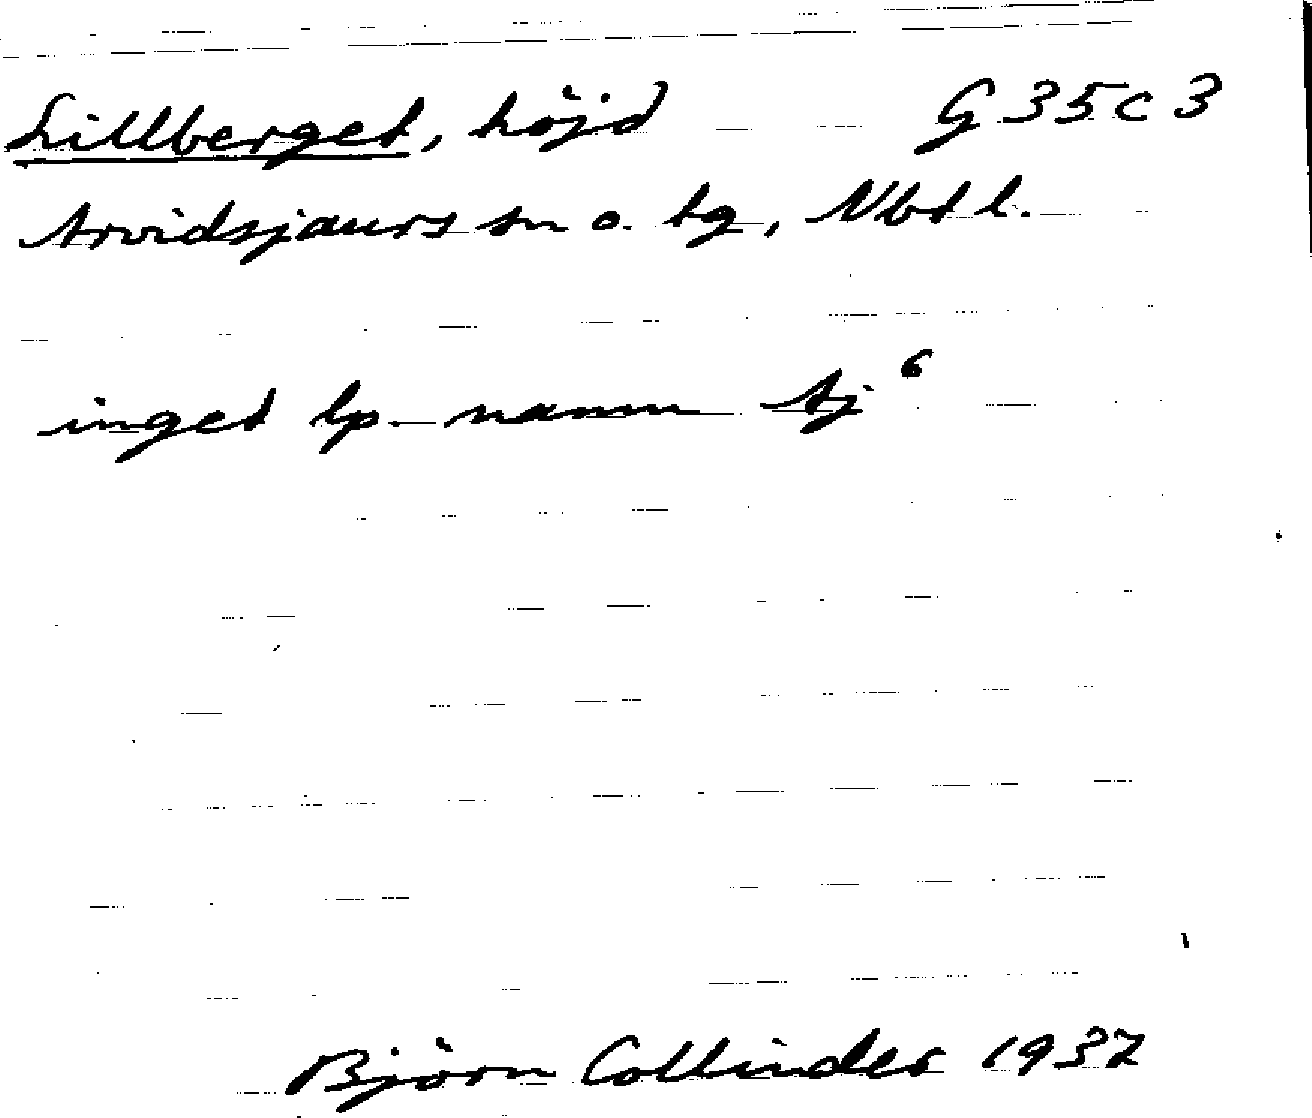 Lillberget, höjd G 35 c 3
Arvidsjaurs sn o. tg, Nbtl.
inget lp. namn Aj 6
Björn Collinder 1937